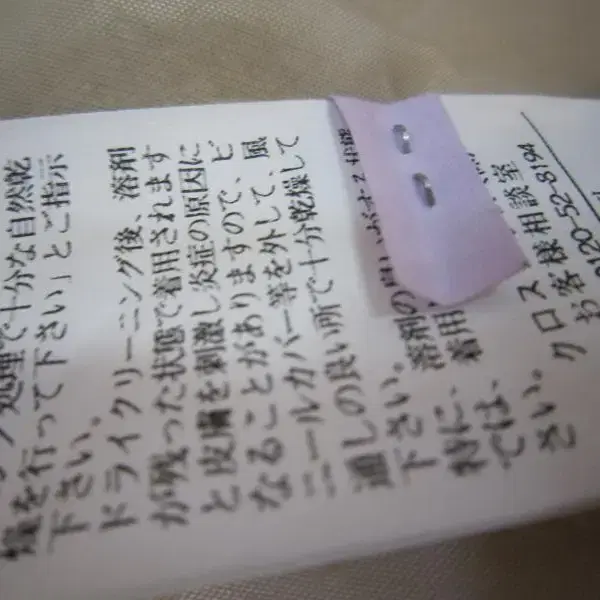 処理で十分な自然乾
燥を行って下さい」とご指示
下さい。
ドライクリーニング後、溶剤
が残った状態で着用されます
と皮膚を刺激し炎症の原因に
なることがありますので、ビ
ニールカバー等を外して、風
通しの良い所で十分乾燥して
下さい。
特に、溶剤の
ては、着用
さい。
クロス
お客様相談室
0120-52-8194